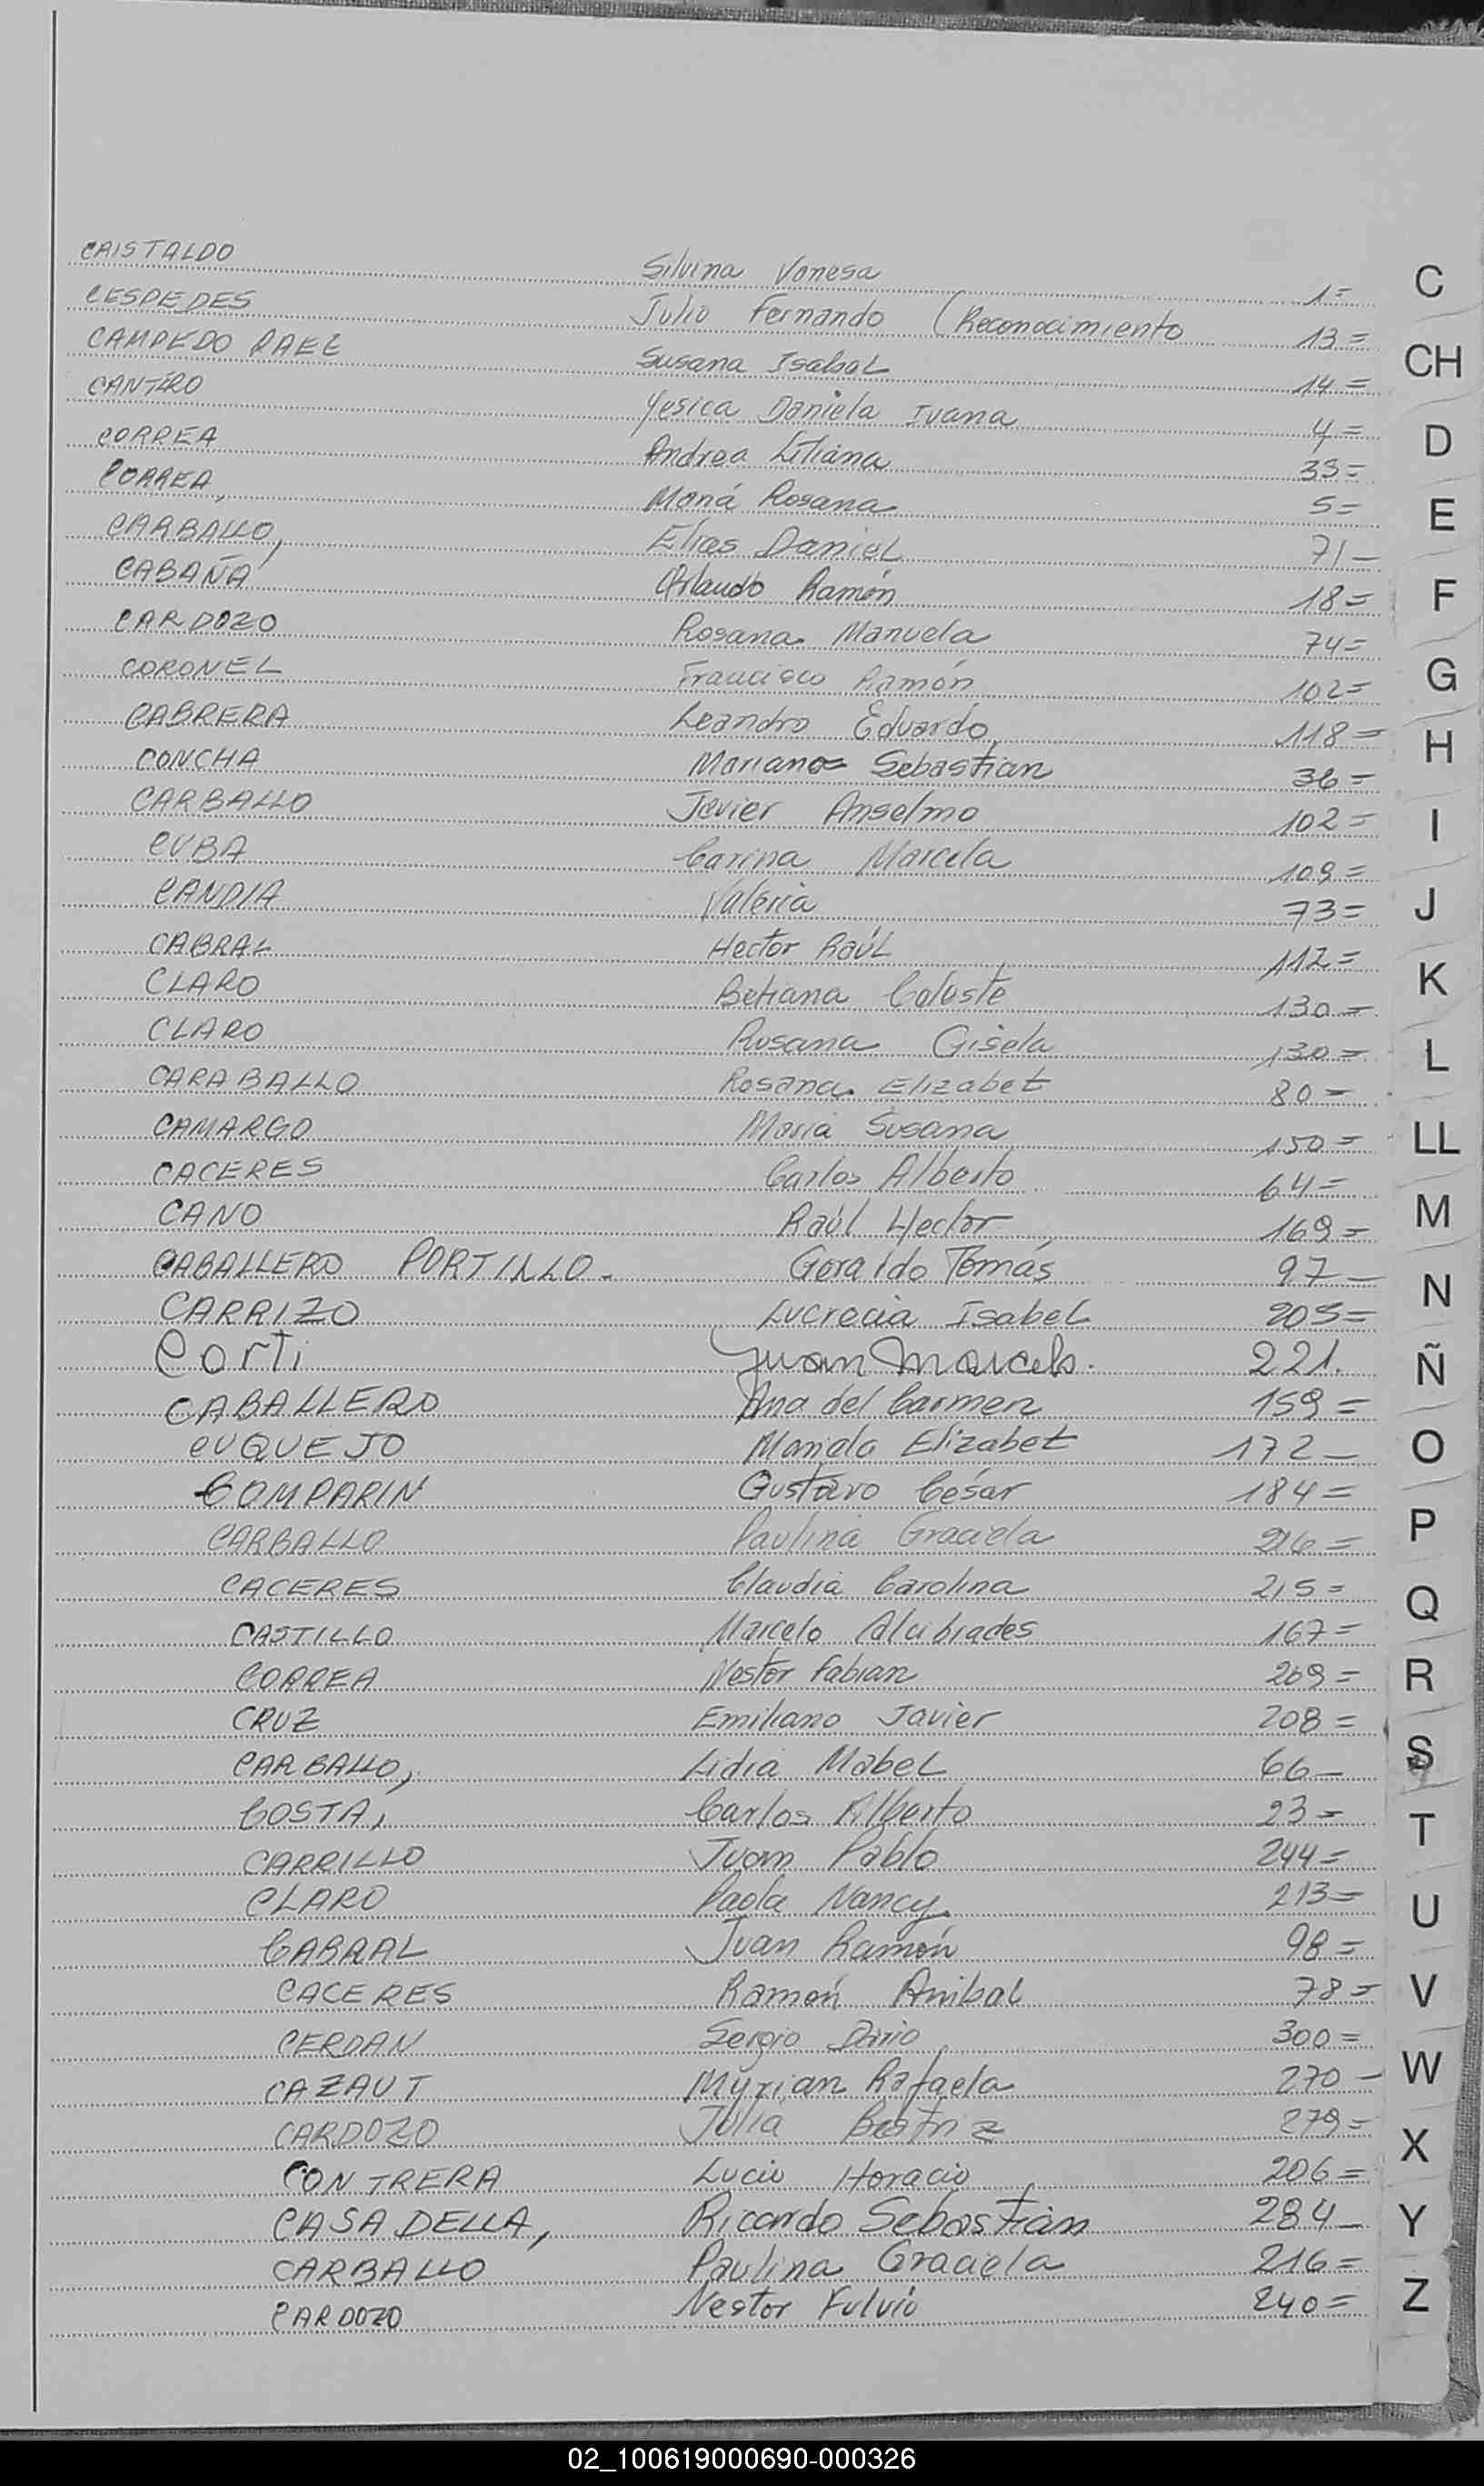 CAISTALDO Silvina Vanesa 1=
CESPEDES Julio Fernando (Reconocimiento 13=
CAMPEDO RAEL Susana Isabel 14=
CANTERO Yesica Daniela Ivana 4=
CORREA Andrea Liliana 35=
CORREA, María Rosana 5=
CARBALLO, Elias Daniel 71-
CABAÑA Orlando Ramón 18=
CARDOZO Rosana Manuela 74=
CORONEL Francisco Ramón 102=
CABRERA Leandro Eduardo 118=
CONCHA Mariano= Sebastian 36=
CARBALLO Javier Anselmo 102=
CUBA Carina Marcela 109=
CANDIA Valeria 73=
CABRAL Hector Raúl 112=
CLARO Betiana Celeste 130=
CLARO Rosana Gisela 130=
CARABALLO Rosana Elizabet 80=
CAMARGO Maria Susana 150=
CACERES Carlos Alberto 64=
CANO Raúl Hector 169=
CABALLERO PORTILLO- Geraldo Tomás 97-
CARRIZO Lucrecia Isabel 205=
Corti Juan Marcelo. 221.
CABALLERO Ana del Carmen 159=
CUQUEJO Mariela Elizabet 172-
COMPARIN Gustavo César 184=
CARBALLO Paulina Graciela 216=
CACERES Claudia Carolina 215=
CASTILLO Marcelo Alcibiades 167=
CORREA Nestor Fabian 209=
CRUZ Emiliano Javier 208=
CARBALLO, Lidia Mabel 66-
COSTA, Carlos Alberto 23=
CARRILLO Juan Pablo 244=
CLARO Paola Nancy 213=
CABRAL Juan Ramón 98=
CACERES Ramón Anibal 78=
CERDAN Sergio Dario 300=
CAZAUT Myrian Rafaela 270-
CARDOZO Julia Beatriz 279=
CONTRERA Lucio Horacio 206=
CASADELLA, Ricardo Sebastián 284-
CARBALLO Paulina Graciela 216=
CARDOZO Nestor Fulvio 240=
C
CH
D
E
F
G
H
I
J
K
L
LL
M
N
Ñ
O
P
Q
R
S
T
U
V
W
X
Y
Z
02_100619000690-000326